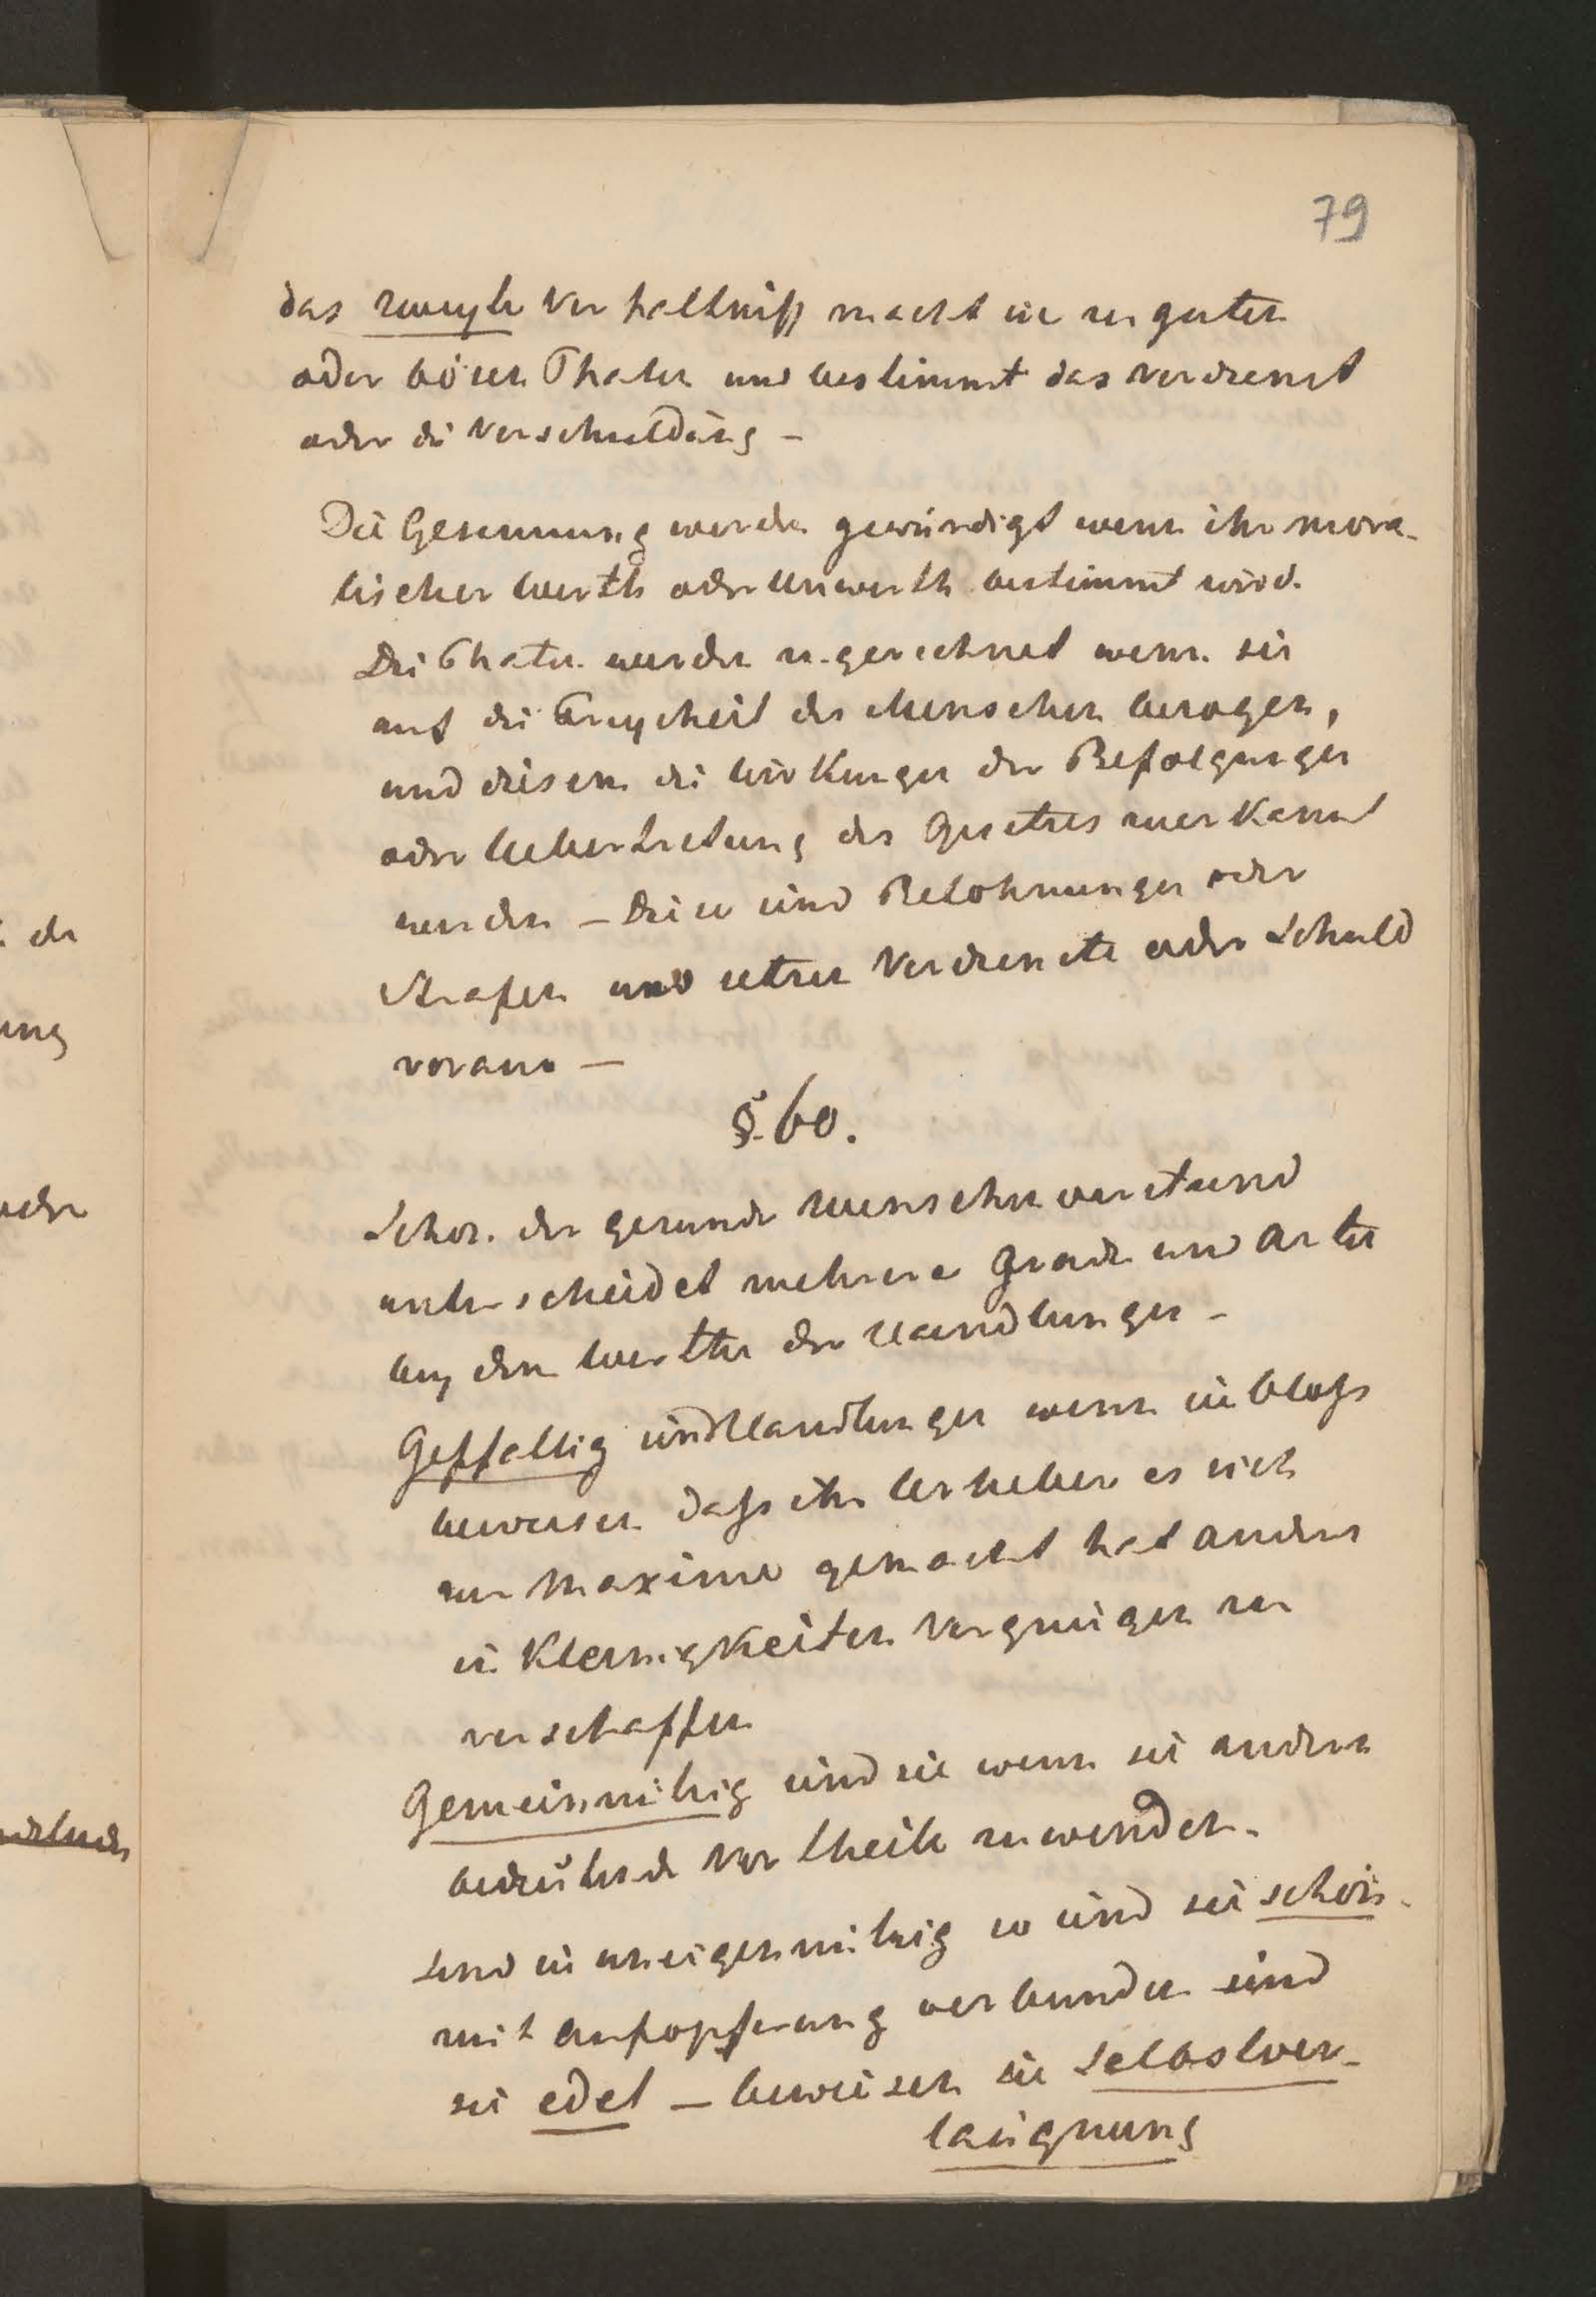 79
das zweyte Verhaltniß macht sie zu guten
oder bösen Thaten und bestimmt das Verdienst
oder die Verschuldung –
Die Gesinnung werden gewürdigt wenn ihr mora-
lischer Werth oder Unwerth bestimmt wird.
Die Thaten werden zugerechnet wenn sie
auf die Freyheit des Menschen bezogen,
und diesem die Wirkungen der Befolgungen
oder Uebertretung des Gesetzes zuerkannt
werden – Diese sind Belohnungen oder
Strafen und setzen Verdienste oder Schuld
voraus –
§. 60.
Schon der gesunde Menschenverstand
unterscheidet mehrere Grade und Arten
bey dem Werthe der Handlungen –
Geffallig sind Handlungen wenn sie bloß
beweisen daß ihr Urheber es sich
zur Maxime gemacht hat andern
in Kleinigkeiten Vergnügen zu
verschaffen
Gemeinnützig sind sie wenn sie andern
bedeutende Vortheile zuwenden.
Sind sie uneigennützig so sind sie schön.
mit Aufopferung verbunden sind
sie edel – beweisen sie Selbstver-
laügnung
der
ung
oder